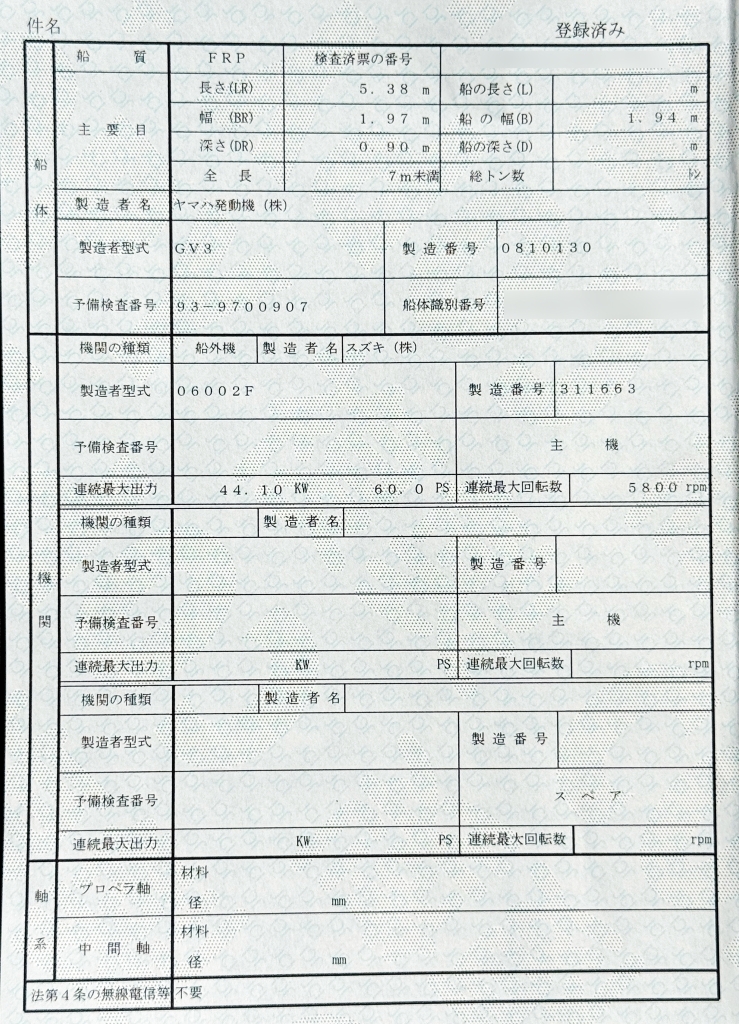 件名 登録済み
船体
船質 FRP 検査済票の番号
主要目 長さ(LR) 5.38 m 船の長さ(L) m
幅 (BR) 1.97 m 船の幅(B) 1.94 m
深さ(DR) 0.90 m 船の深さ(D) m
全長 7m未満 総トン数 トン
製造者名 ヤマハ発動機(株)
製造者型式 GV3 製造番号 0810130
予備検査番号 93-9700907 船体識別番号
機関
機関の種類 船外機 製造者名 スズキ(株)
製造者型式 06002F 製造番号 311663
予備検査番号 主機
連続最大出力 44.10 KW 60.0 PS 連続最大回転数 5800 rpm
機関の種類 製造者名
製造者型式 製造番号
予備検査番号 主機
連続最大出力 KW PS 連続最大回転数 rpm
機関の種類 製造者名
製造者型式 製造番号
予備検査番号 スペア
連続最大出力 KW PS 連続最大回転数 rpm
軸系
プロペラ軸 材料
径 mm
中間軸 材料
径 mm
法第4条の無線電信等 不要